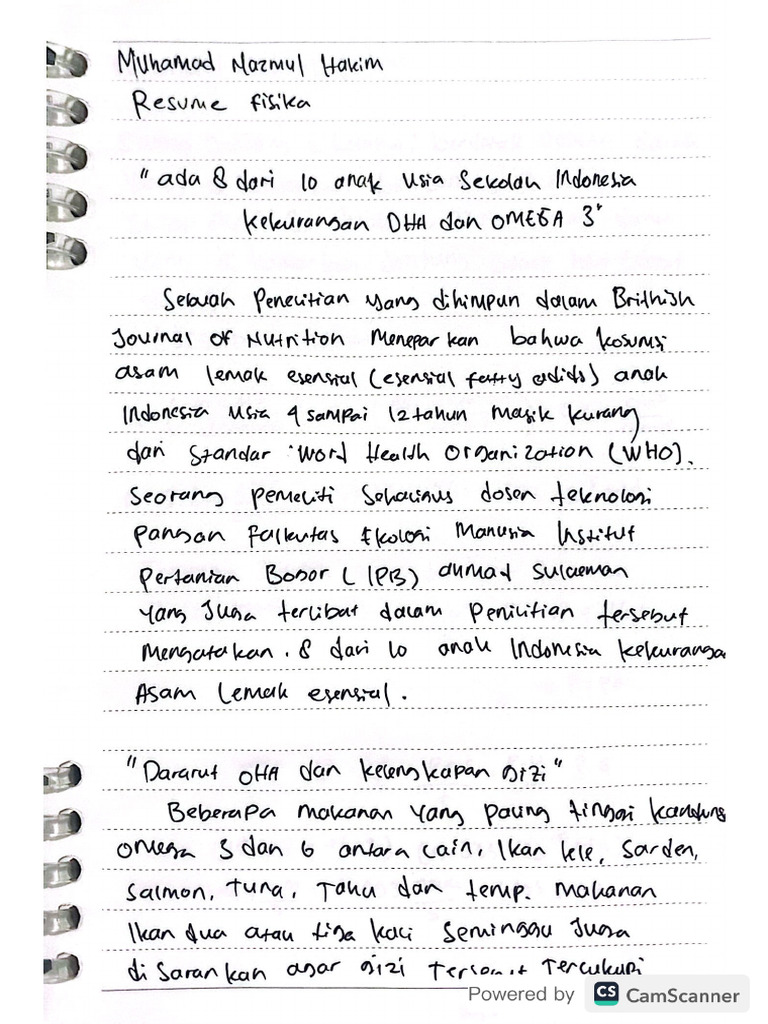 Muhamad Nazmul Hakim
Resume fisika
"ada 8 dari 10 anak usia Sekolah Indonesia
kekurangan DHA dan OMEGA 3"
Sebuah Penelitian yang dihimpun dalam Brithish
Journal of Nutrition Meneparkan bahwa kosumsi
asam lemak esensial (esensial fatty acids) anak
Indonesia usia 4 sampai 12 tahun masik kurang
dari Standar Word Health Organization (WHO).
Seorang pemeliti Sekaligus dosen teknologi
pangan Falkutas Ekologi Manusia Institut
Pertanian Bogor (IPB) ahmad Sulaeman
yang Juga terlibat dalam Penilitian tersebut
Mengatakan. 8 dari 10 anak Indonesia kekuranga
Asam Lemak esensial.
"Dararut DHA dan kelengkapan gizi"
Beberapa makanan yang paling tinggi kandung
omega 3 dan 6 antara lain, Ikan kle, Sarden,
Salmon, tuna, Tahu dan temp. makanan
Ikan dua atau tiga kali Seminggu Juga
di Sarankan agar gizi Tersebut Tercukupi
Powered by CS CamScanner